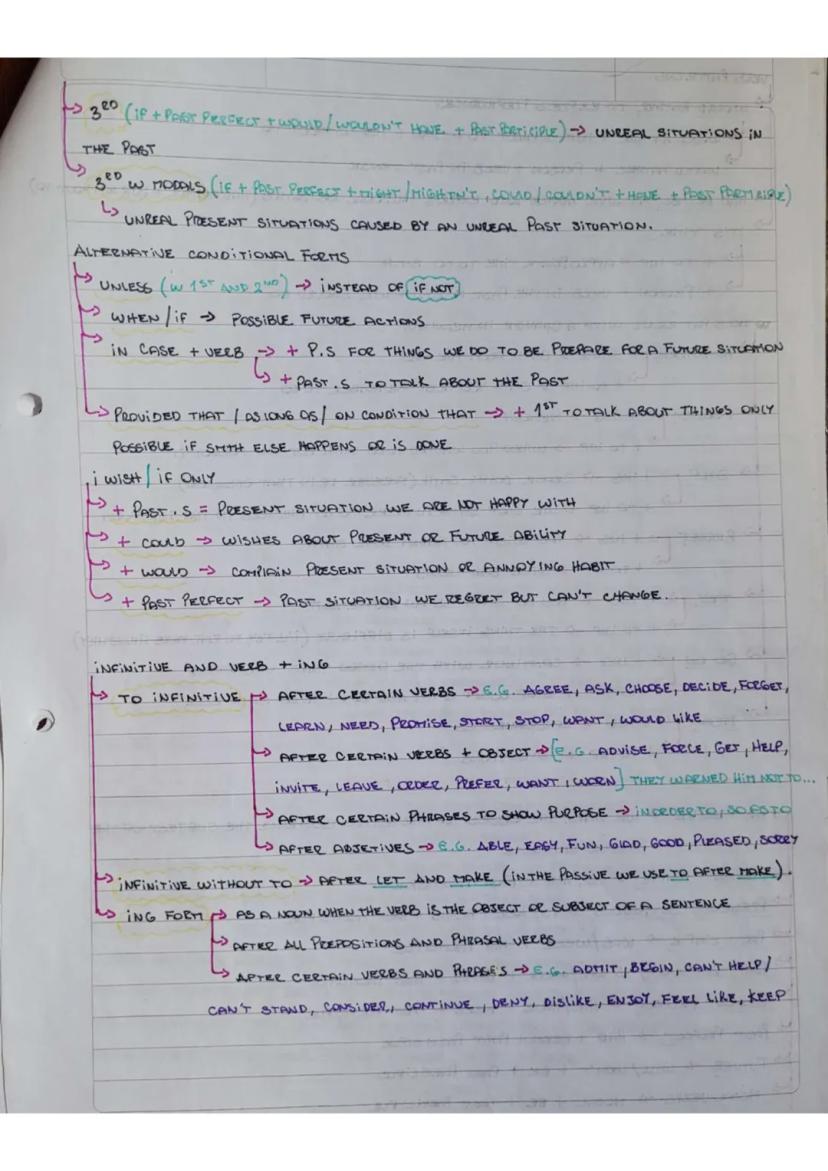 → 3RD (iF + PAST PERFECT + WOULD / WOULDN'T HAVE + PAST PARTICIPLE) → UNREAL SITUATIONS IN
THE PAST
→ 3RD W MODALS (iF + PAST PERFECT + MIGHT / MIGHTN'T, COULD / COULDN'T + HAVE + PAST PARTICIPLE)
↳ UNREAL PRESENT SITUATIONS CAUSED BY AN UNREAL PAST SITUATION.
ALTERNATIVE CONDITIONAL FORMS
→ UNLESS (W 1ST AND 2ND) → iNSTEAD OF iF NOT
→ WHEN / iF → POSSIBLE FUTURE ACTIONS
→ iN CASE + VERB → + P.S FOR THINGS WE DO TO BE PREPARE FOR A FUTURE SITUATION
↳ + PAST.S TO TALK ABOUT THE PAST
→ PROVIDED THAT / AS LONG AS / ON CONDITION THAT → + 1ST TO TALK ABOUT THINGS ONLY
POSSIBLE iF SMTH ELSE HAPPENS OR iS DONE
i WISH / iF ONLY
→ + PAST.S = PRESENT SITUATION WE ARE NOT HAPPY WITH
→ + COULD → WISHES ABOUT PRESENT OR FUTURE ABILITY
→ + WOULD → COMPLAIN PRESENT SITUATION OR ANNOYING HABIT
→ + PAST PERFECT → PAST SITUATION WE REGRET BUT CAN'T CHANGE.
iNFINITIVE AND VERB + iNG
→ TO INFINITIVE → AFTER CERTAIN VERBS → E.G. AGREE, ASK, CHOOSE, DECIDE, FORGET,
LEARN, NEED, PROMISE, START, STOP, WANT, WOULD LIKE
→ AFTER CERTAIN VERBS + OBJECT → [e.G. ADVISE, FORCE, GET, HELP,
iNVITE, LEAVE, ORDER, PREFER, WANT, WARN] THEY WARNED HIM NOT TO...
→ AFTER CERTAIN PHRASES TO SHOW PURPOSE → iN ORDER TO, SO AS TO
→ AFTER ADJETIVES → E.G. ABLE, EASY, FUN, GLAD, GOOD, PLEASED, SORRY
→ iNFINITIVE WITHOUT TO → AFTER LET AND MAKE (IN THE PASSIVE WE USE TO AFTER MAKE).
→ iNG FORM → AS A NOUN WHEN THE VERB IS THE OBJECT OR SUBJECT OF A SENTENCE
→ AFTER ALL PREPOSITIONS AND PHRASAL VERBS
→ AFTER CERTAIN VERBS AND PHRASES → E.G. ADMIT, BEGIN, CAN'T HELP /
CAN'T STAND, CONSIDER, CONTINUE, DENY, DISLIKE, ENJOY, FEEL LIKE, KEEP